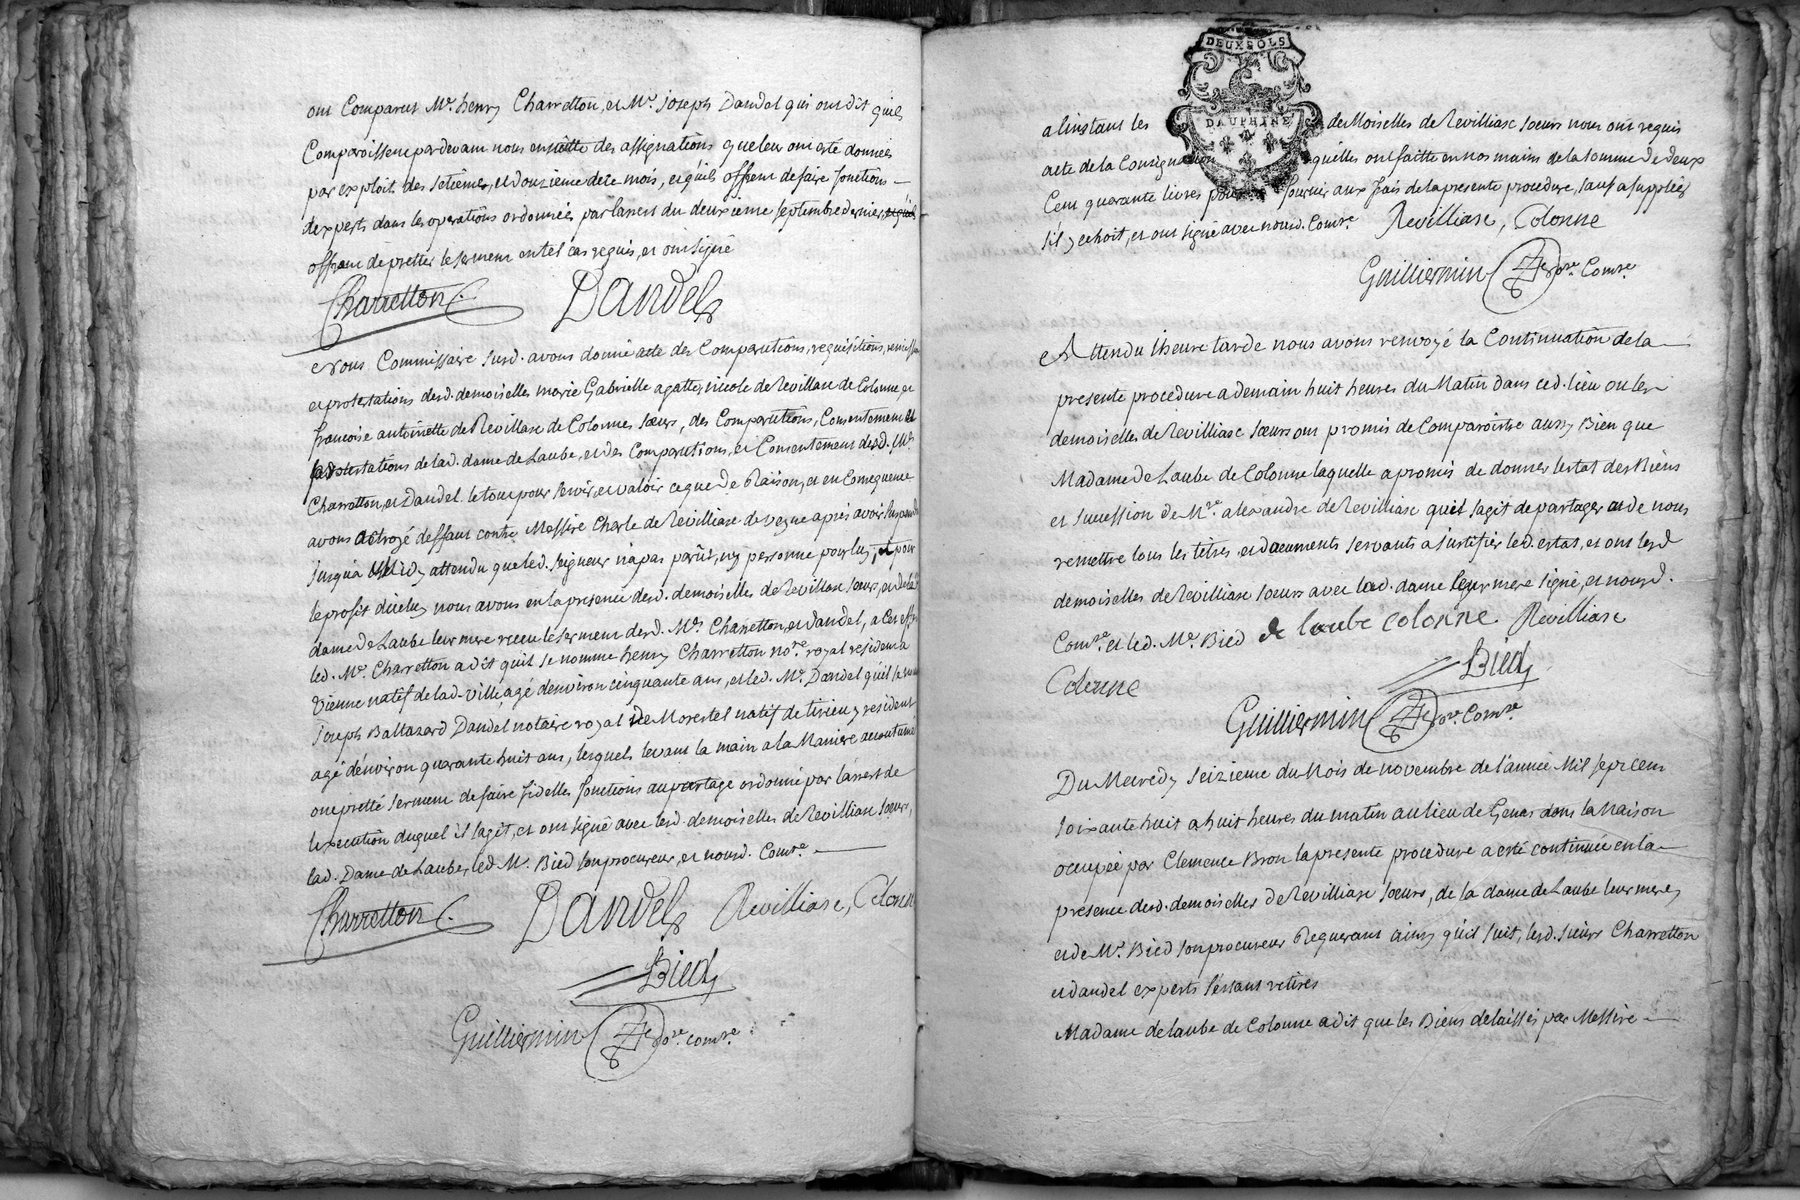 ont Comparus Mr. henry Charretton, et Mr. Joseph Dandel qui ont dit quils
Comparoissent pardevant nous ensuitte des assignations queleur ont eté données
par exploit des setiême, et douzième de ce mois, et quils offrent de faire fonctions
d'experts dans les operations ordonnées par larrest du deuxieme septembre dernier,
offrant de pretter le serment en tel cas requis, et ont signé
Charretton Dandel
et nous Commissaire susd. avons donné acte des Comparutions, requisitions,
et protestations desd. demoiselles marie Gabrielle agatte, nicole de Revilliasc de Colonne, et
francoise antoinette de Revilliasc de Colonne, sœurs, des Comparutions, Consentement et
protestations de lad. dame de Laube, et des Comparutions, et Consentement desd. Mrs
Charretton, et Dandel le tout pour servir, et valoir ce que de Raison, et en Consequence
avons octroyé deffaut contre Messire Charle de Revilliasc de veyne après avoir
jusqua Midy attendu que led. seigneur na pas parû, ny personne pour luy, et pour
le profit diceluy nous avons en la presence desd. demoiselles de Revilliasc sœurs, et de lad.
dame de Laube leur mere receu le serment desd. Mrs Charretton, et Dandel, a Cet effet
led. Mr. Charretton a dit quil se nomme henry Charretton nore. royal resident a
Vienne natif de lad. ville, agé denviron cinquante ans, et led. Mr. Dandel quil se nomme
Joseph Baltazard Dandel notaire royal de Morestel natif de tirieu y resident
agé denviron quarante huit ans, lesquels levant la main a la Maniere accoutumé
ont pretté serment de faire fidelles fonctions au partage ordonné par larrest de
lexecution duquel il sagit, et ont signé avec lesd. demoiselles de Revilliasc sœurs,
lad. Dame de Laube, led. Mr. Bied son procureur, et nousd. Comre.
Charretton Dandel Revilliasc, Colonne
Bied
Guilliermin nore. comre.
DEUX SOLS
DAUPHINÉ
a linstant les demoiselles de Revilliasc sœurs nous ont requis
acte de la Consignation quelles ont faitte en nos mains de la somme de deux
Cent quarante livres pour fournir aux frais de la presente procedure, sauf a suppléer
sil y echoit, et ont signé avec nousd. Comre. Revilliasc, Colonne
Guilliermin nore. Comre.
Attendu lheure tarde nous avons renvoyé la Continuation de la
presente procedure a demain huit heures du Matin dans ced. lieu ou les
demoiselles de Revilliasc sœurs ont promis de Comparoistre aussy Bien que
Madame de Laube de Colonne laquelle a promis de donner lestat des Biens
et sucession de Mre. alexandre de Revilliasc quil sagit de partager et de nous
remettre tous les titres et documents servants a justifier led. estat, et ont lesd.
demoiselles de Revilliasc sœurs avec lad. dame leur mere signé, et nousd.
Comre. et led. Mr. Bied de laube colonne Revilliasc
Colonne Bied
Guilliermin nore. Comre.
Du Mecredy seizieme du Mois de novembre de l'année Mil sept cent
soixante huit a huit heures du matin au lieu de Genas dans la Maison
occupée par Clemence Bron la presente procedure a esté continuée en la
presence desd. demoiselles de Revilliasc sœurs, de la dame de Laube leur mere,
et de Mr. Bied son procureur Requerant ainsy quil suit, lesd. sieurs Charretton
et dandel experts s'estant retirés
Madame de laube de Colonne a dit que les Biens delaissés par Messire